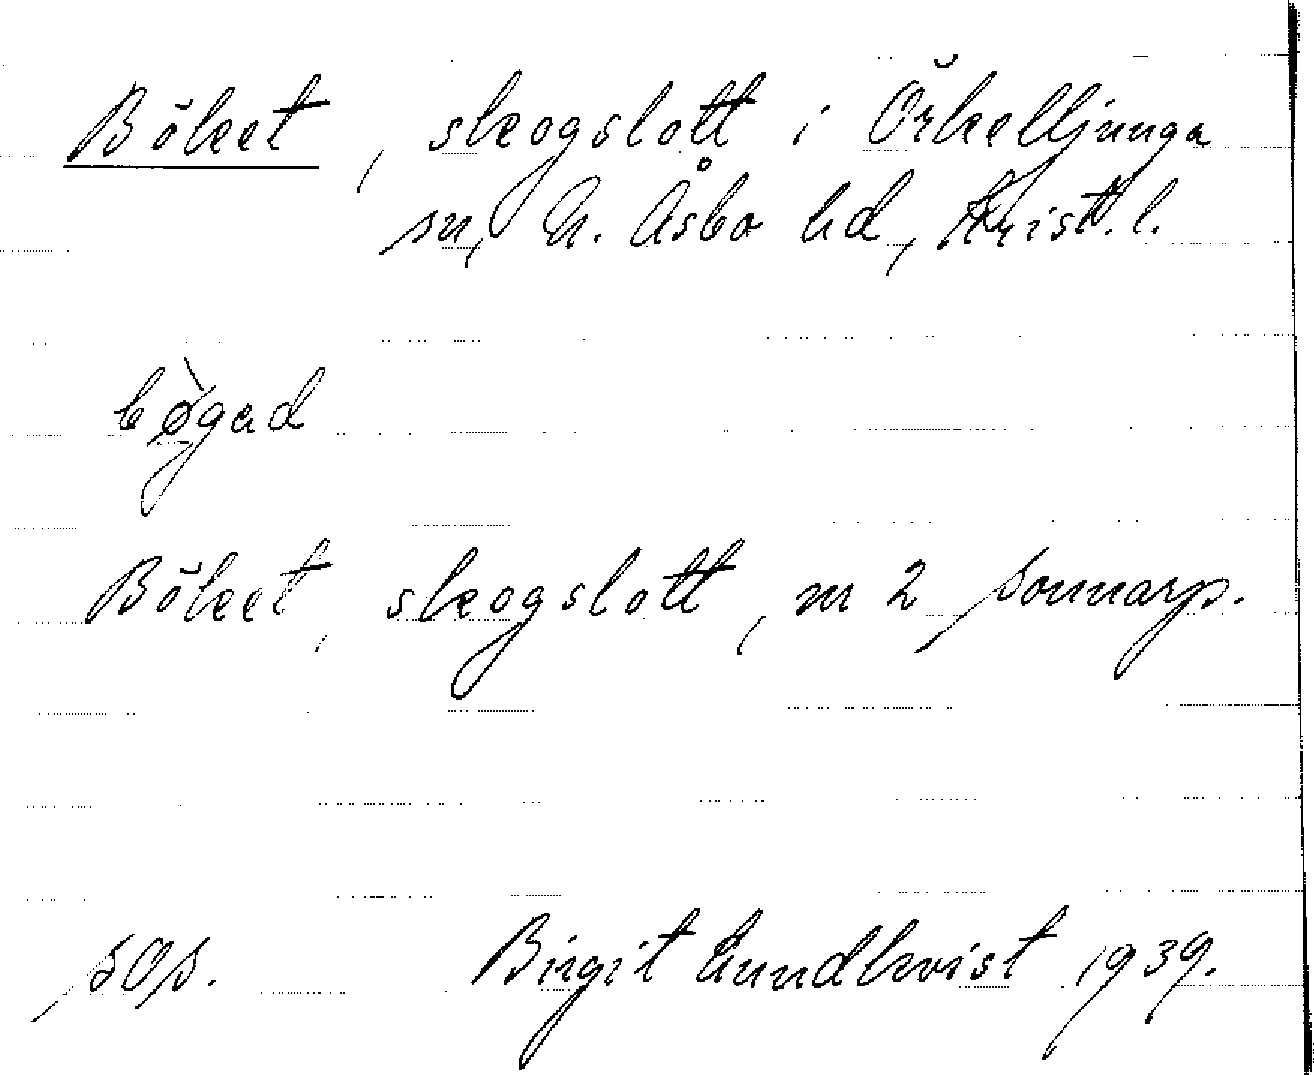 Böket, skogslott i Örkelljunga
sn, N. Åsbo hd, Krist. l.
bø̀gad
Böket, skogslott, nr 2 Sonnarp.
sOs. Birgit Lundkvist 1939.